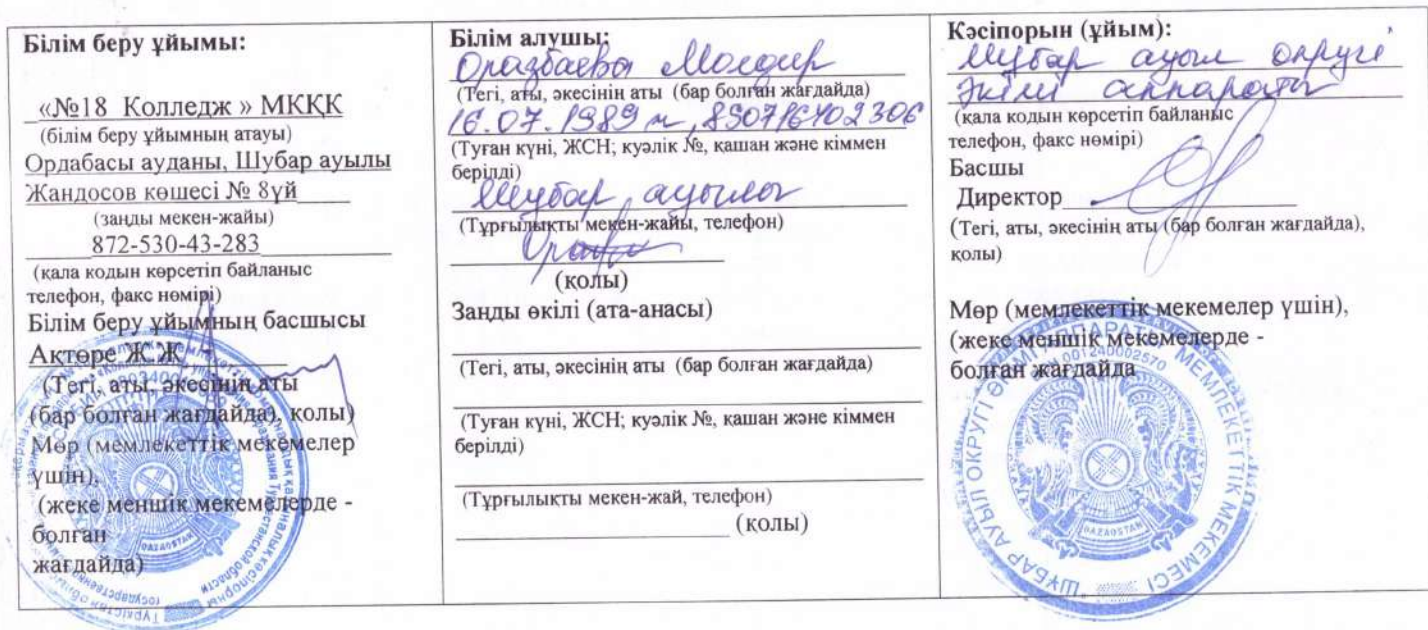 Білім беру ұйымы:
«№18 Колледж » МКҚК
(білім беру ұйымның атауы)
Ордабасы ауданы, Шубар ауылы
Жандосов көшесі № 8үй
(заңды мекен-жайы)
872-530-43-283
(қала кодын көрсетіп байланыс
телефон, факс нөмірі)
Білім беру ұйымның басшысы
Ақтөре Ж.Ж
(Тегі, аты, әкесінің аты
(бар болған жағдайда), қолы)
Мөр (мемлекеттік мекемелер
үшін),
(жеке меншік мекемелерде -
болған
жағдайда)
Білім алушы:
Оразбаева Молдир
(Тегі, аты, әкесінің аты (бар болған жағдайда)
16.07.1989 ж, 890716402306
(Туған күні, ЖСН; куәлік №, қашан және кіммен
берілді)
Шубар ауылы
(Тұрғылықты мекен-жайы, телефон)
(қолы)
Заңды өкілі (ата-анасы)
(Тегі, аты, әкесінің аты (бар болған жағдайда)
(Туған күні, ЖСН; куәлік №, қашан және кіммен
берілді)
(Тұрғылықты мекен-жай, телефон)
(қолы)
Кәсіпорын (ұйым):
Шубар ауыл округі
Әкімі аппараты
(қала кодын көрсетіп байланыс
телефон, факс нөмірі)
Басшы
Директор
(Тегі, аты, әкесінің аты (бар болған жағдайда),
қолы)
Мөр (мемлекеттік мекемелер үшін),
(жеке меншік мекемелерде -
болған жағдайда
ШҰБАР АУЫЛ ОКРУГІ ӘКІМІ АППАРАТЫ МЕМЛЕКЕТТІК МЕКЕМЕСІ
001240002570
QAZAQSTAN